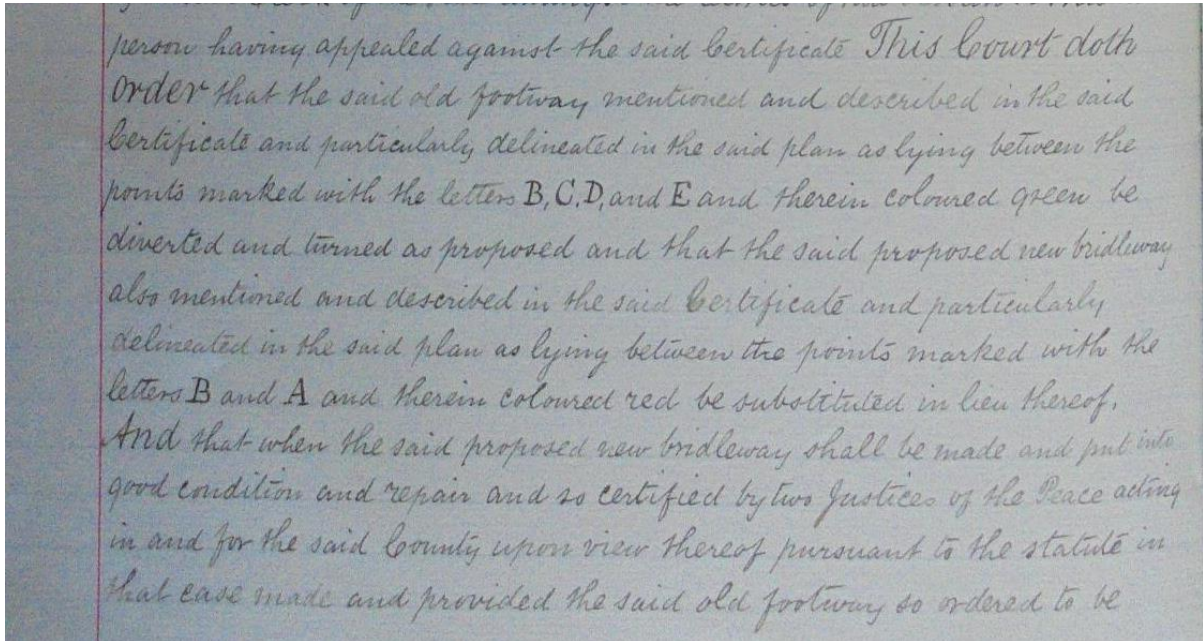 person having appealed against the said Certificate This Court doth
order that the said old footway mentioned and described in the said
Certificate and particularly delineated in the said plan as lying between the
points marked with the letters B, C, D, and E and therein coloured green be
diverted and turned as proposed and that the said proposed new bridleway
also mentioned and described in the said Certificate and particularly
delineated in the said plan as lying between the points marked with the
letters B and A and therein coloured red be substituted in lieu thereof.
And that when the said proposed new bridleway shall be made and put into
good condition and repair and so certified by two Justices of the Peace acting
in and for the said County upon view thereof pursuant to the statute in
that case made and provided the said old footway so ordered to be